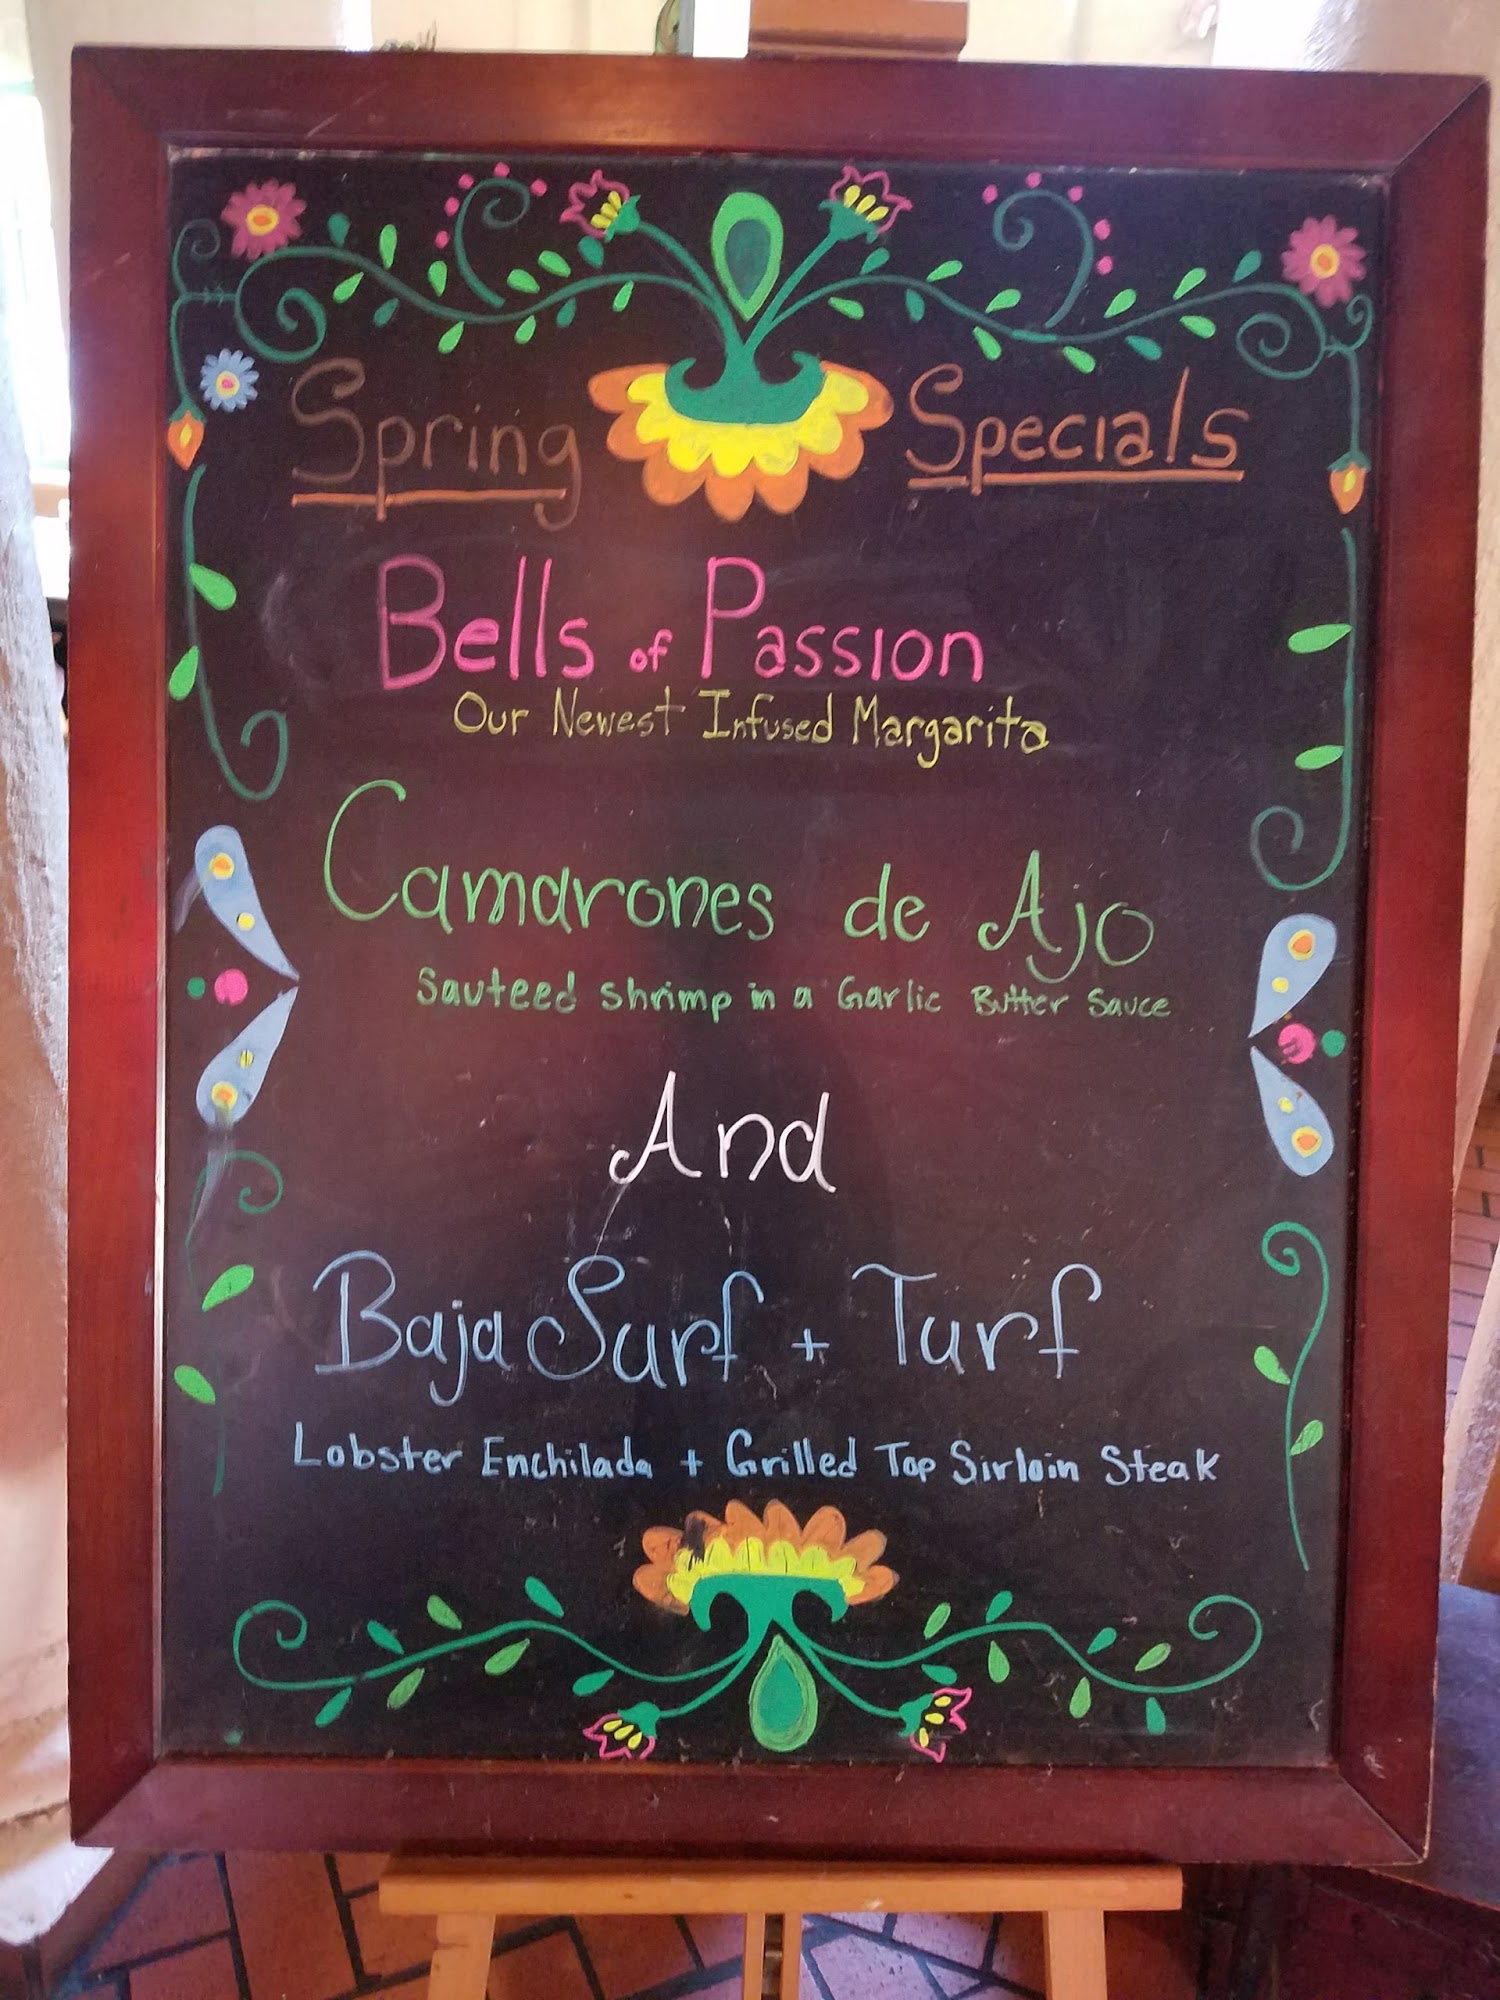 Spring Specials
Bells of Passion
Our Newest Infused Margarita
Camarones de Ajo
Sauteed Shrimp in a Garlic Butter Sauce
And
Baja Surf + Turf
Lobster Enchilada + Grilled Top Sirloin Steak